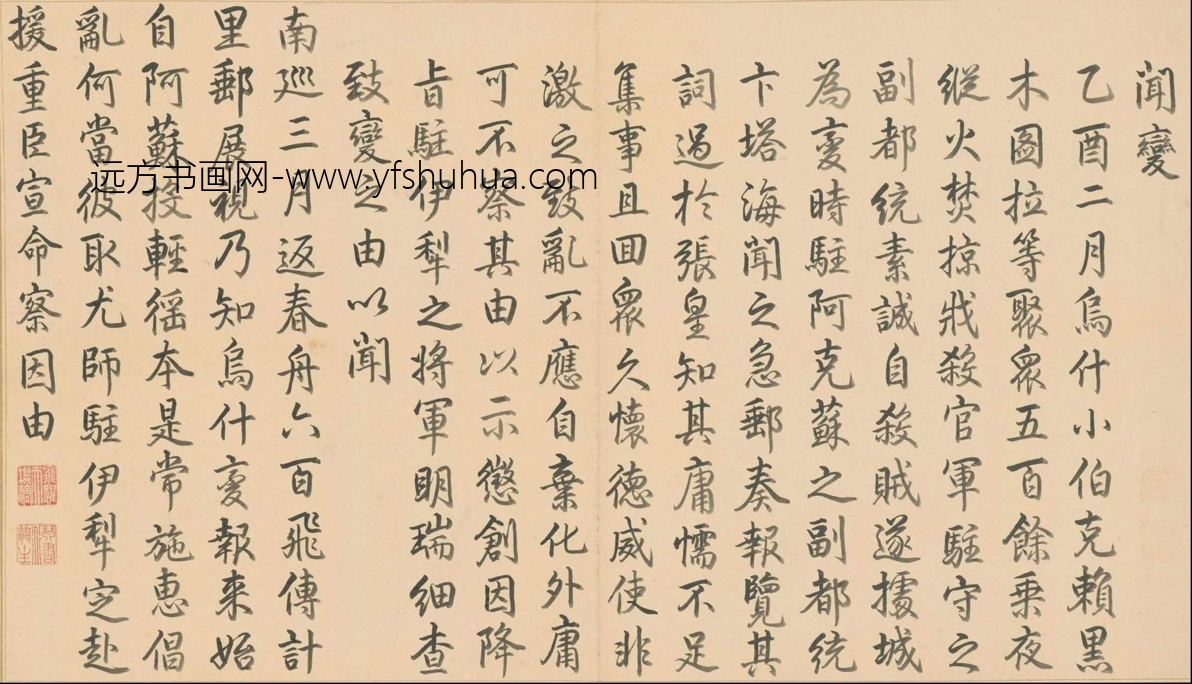 聞變
乙酉二月烏什小伯克賴黑
木圖拉等聚衆五百餘乗夜
縱火焚掠戕殺官軍駐守之
副都統素誠自殺賊遂據城
為變時駐阿克蘇之副都統
卞塔海聞之急郵奏報覽其
詞過於張皇知其庸懦不足
集事且囬衆久懷德威使非
激之致亂不應自棄化外庸
可不察其由以示懲創因降
旨駐伊犁之將軍明瑞細查
致變之由以聞
南廵三月返春舟六百飛傳計
里郵展視乃知烏什變報来始
自阿蘇投輕徭本是常施惠倡
亂何當彼取尤師駐伊犁定赴
援重臣宣命察因由
远方书画网-www.yfshuhua.com